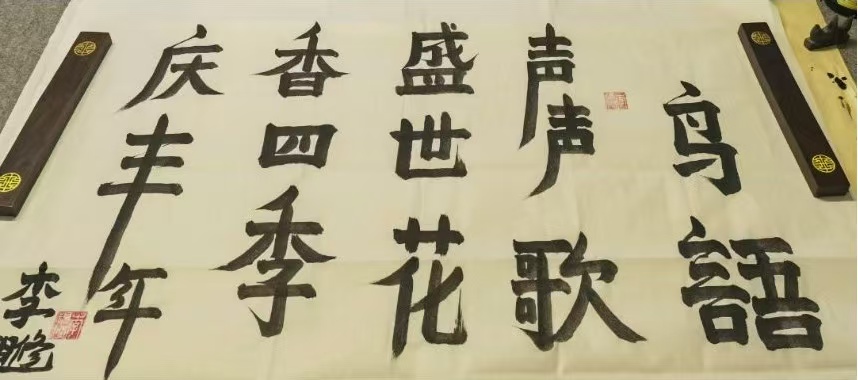 鸟語
声声歌
盛世花
香四季
庆丰年
李